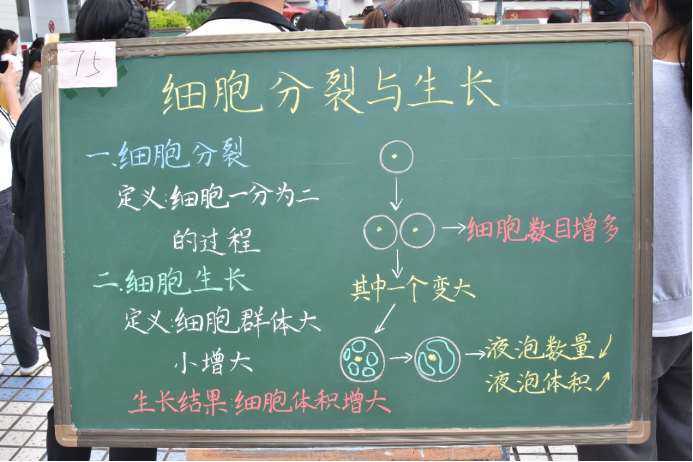 75
细胞分裂与生长
一.细胞分裂
定义:细胞一分为二
的过程
二.细胞生长
定义:细胞群体大
小增大
生长结果:细胞体积增大
→细胞数目增多
其中一个变大
→液泡数量↙
液泡体积↗